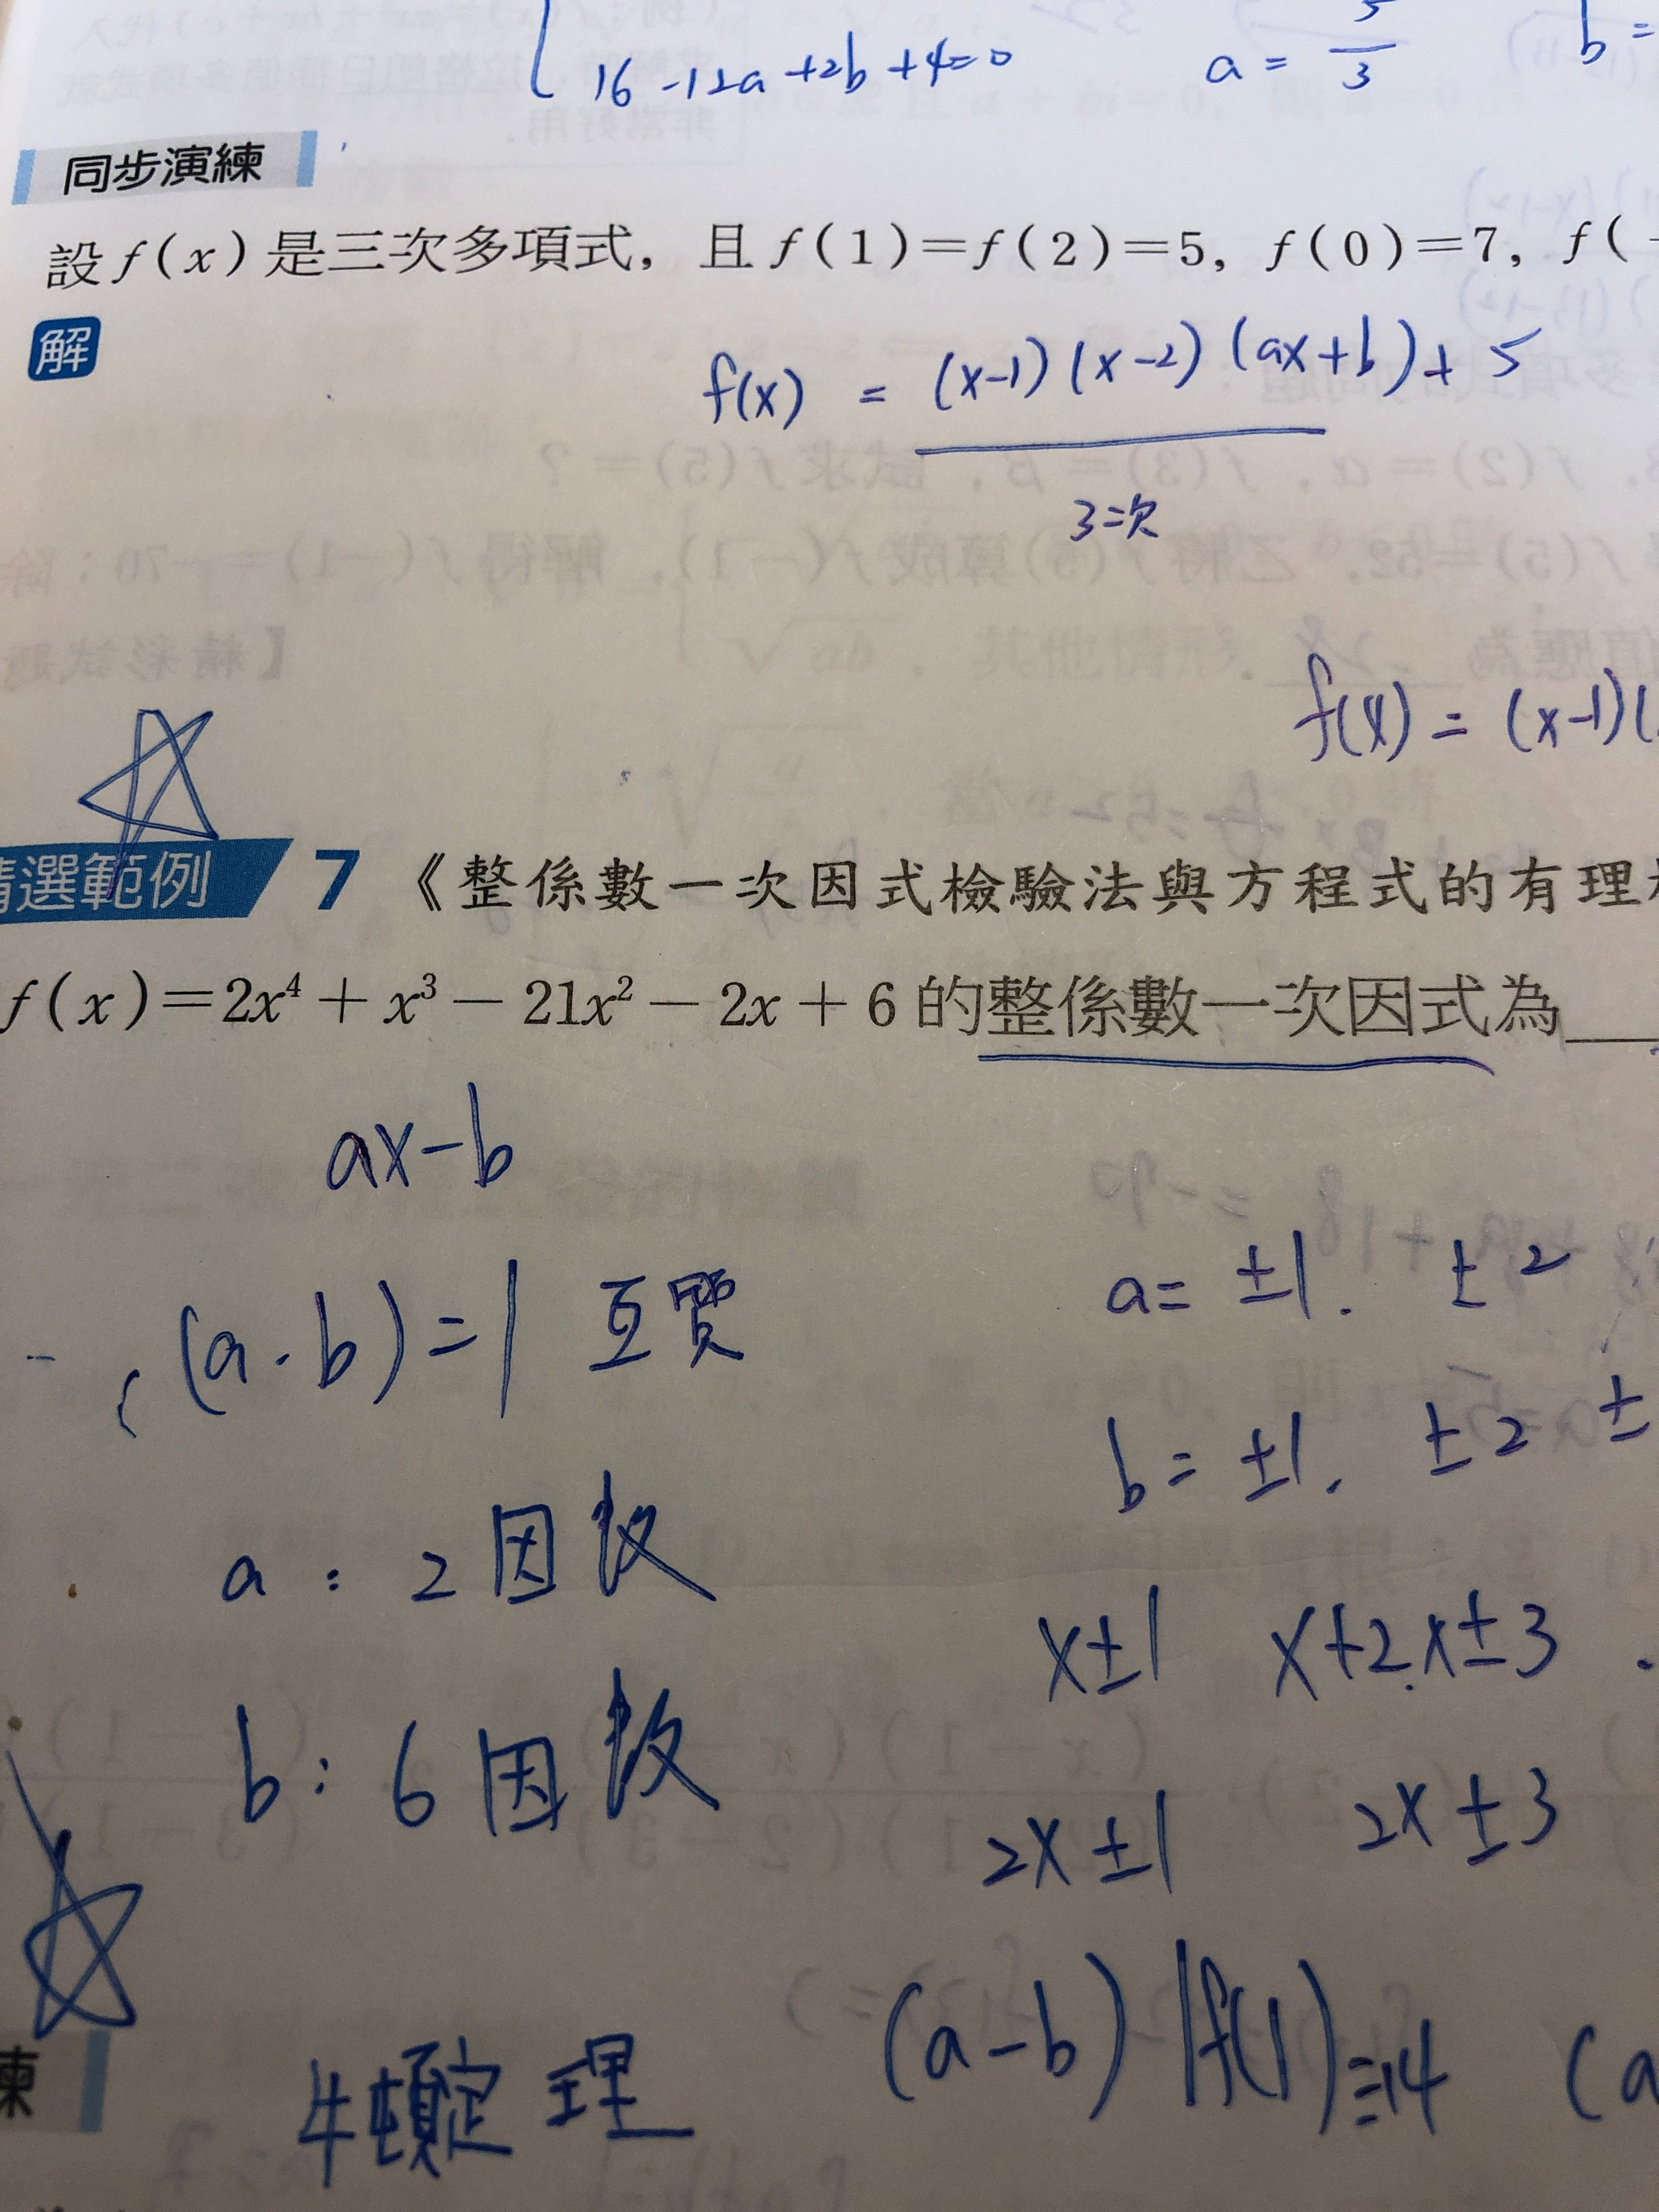 16 -12a +2b +4=0 a = 5/3 b =
同步演練
設 f(x) 是三次多項式, 且 f(1)=f(2)=5, f(0)=7, f(
解
f(x) = (x-1)(x-2)(ax+b)+5
3次
f(x) = (x-1)(
精選範例 7 《整係數一次因式檢驗法與方程式的有理
f(x)=2x⁴+x³-21x²-2x+6 的整係數一次因式為
ax-b
(a.b)=1 互質
a= ±1. ±2
b= ±1. ±2 ±
a : 2因数
x±1 x+2.x±3
b : 6因数
2x±1 2x±3
練
牛頓定理 (a-b) | f(1)=-14 (a